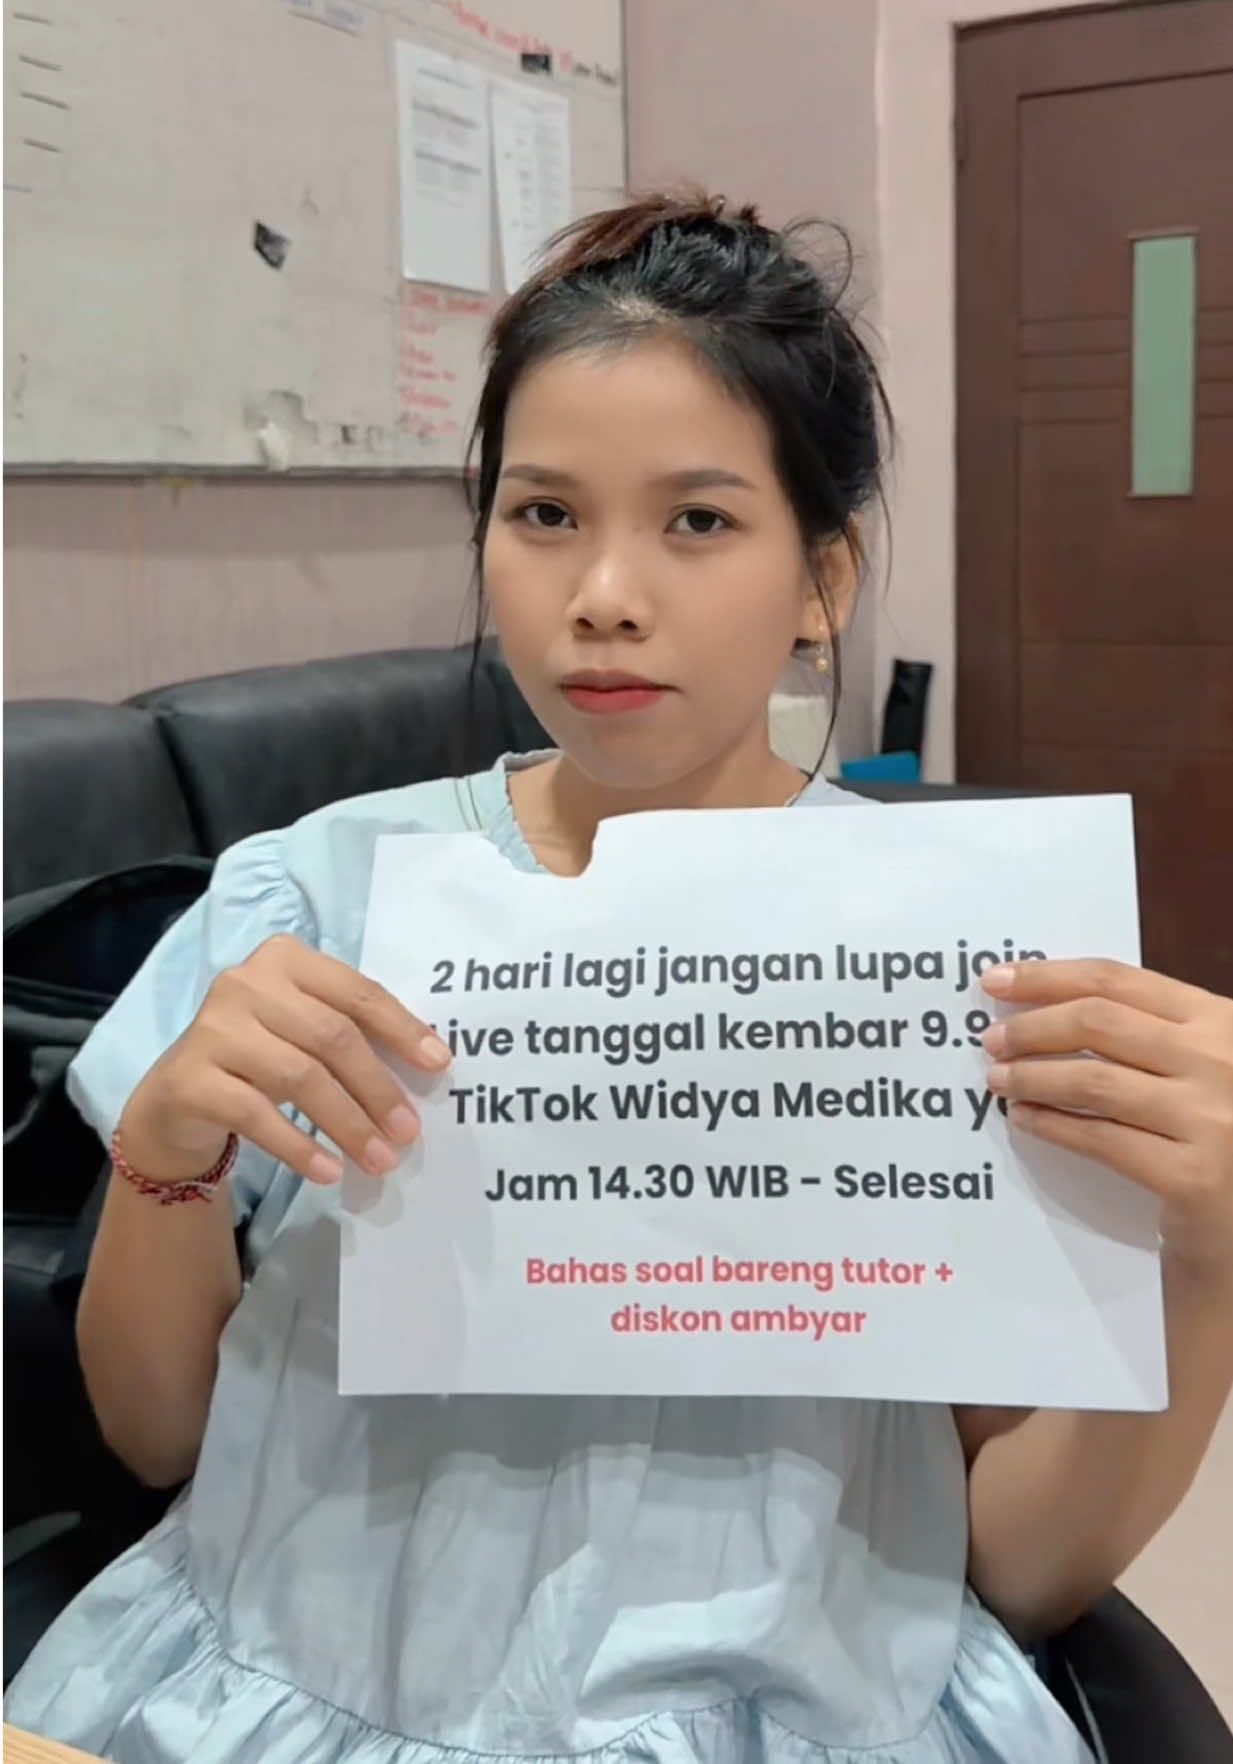 2 hari lagi jangan lupa join
Live tanggal kembar 9.9
TikTok Widya Medika
Jam 14.30 WIB - Selesai
Bahas soal bareng tutor +
diskon ambyar